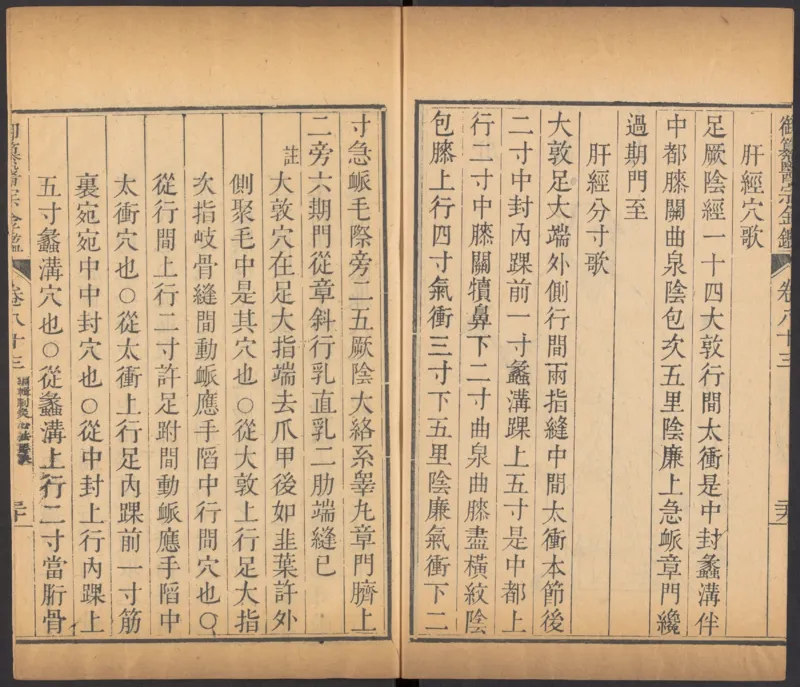 御纂醫宗金鑑
卷八十三
肝經穴歌
足厥陰經一十四大敦行間太衝是中封蠡溝伴
中都膝關曲泉陰包次五里陰廉上急脈章門纔
過期門至
肝經分寸歌
大敦足大端外側行間兩指縫中間太衝本節後
二寸中封內踝前一寸蠡溝踝上五寸是中都上
行二寸中膝關犢鼻下二寸曲泉曲膝盡橫紋陰
包膝上行四寸氣衝三寸下五里陰廉氣衝下二
寸急脈毛際旁二五厥陰大絡系睾丸章門臍上
二旁六期門從章斜行乳直乳二肋端縫已
註大敦穴在足大指端去爪甲後如韭葉許外
側聚毛中是其穴也○從大敦上行足大指
次指歧骨縫間動脈應手陷中行間穴也○
從行間上行二寸許足跗間動脈應手陷中
太衝穴也○從太衝上行足內踝前一寸筋
裏宛宛中中封穴也○從中封上行內踝上
五寸蠡溝穴也○從蠡溝上行二寸當胻骨
御纂醫宗金鑑
卷八十三